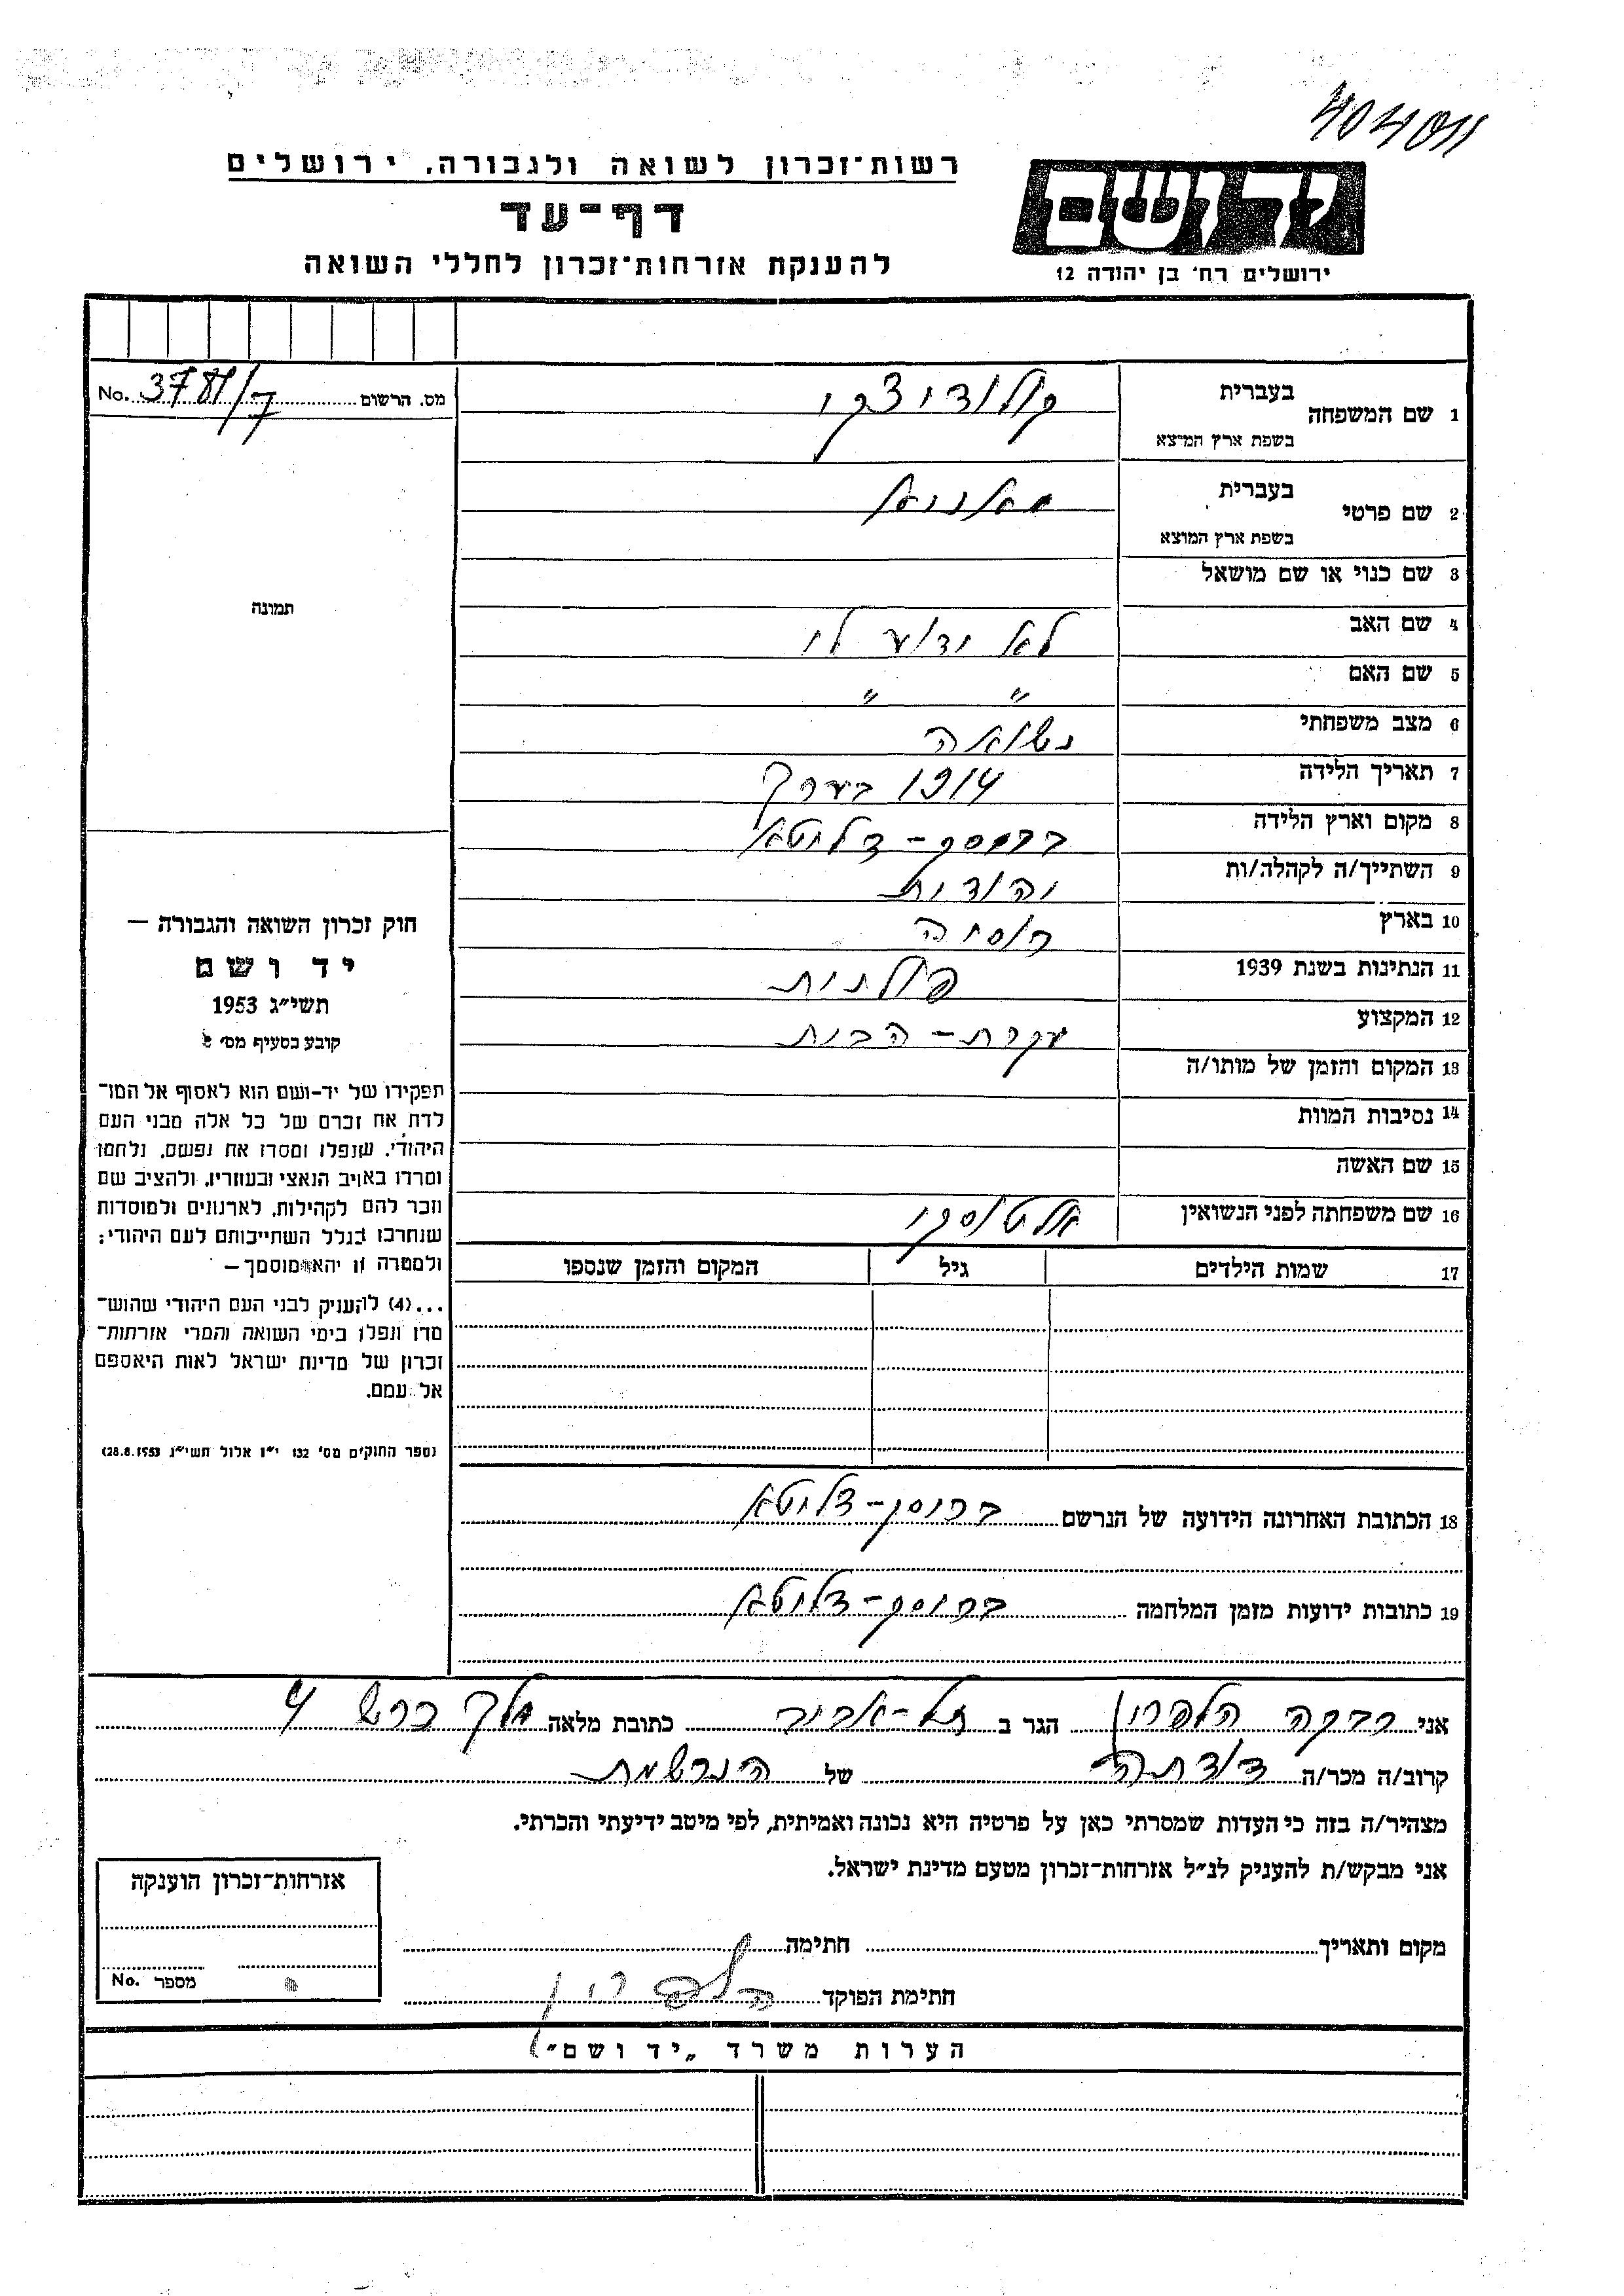 404011
רשות־זכרון לשואה ולגבורה, ירושלים
דף־עד
להענקת אזרחות־זכרון לחללי השואה
יד ושם
ירושלים רח' בן יהודה 12
מס. הרשום No.
1 שם המשפחה בעברית
בשפת ארץ המוצא
2 שם פרטי בעברית
בשפת ארץ המוצא
3 שם כנוי או שם מושאל
4 שם האב לא ידוע לי
5 שם האם " "
6 מצב משפחתי נשואה
7 תאריך הלידה 1914 בערך
8 מקום וארץ הלידה
9 השתייך/ה לקהלה/ות יהודית
10 בארץ רוסיה
11 הנתינות בשנת 1939 פולנית
12 המקצוע עקרת-הבית
13 המקום והזמן של מותו/ה
14 נסיבות המוות
15 שם האשה
16 שם משפחתה לפני הנשואין
17 שמות הילדים גיל המקום והזמן שנספו
18 הכתובת האחרונה הידועה של הנרשם
19 כתובות ידועות מזמן המלחמה
תמונה
חוק זכרון השואה והגבורה —
יד ושם
תשי"ג 1953
קובע בסעיף מס'
תפקידו של יד-ושם הוא לאסוף אל המו־
לדת את זכרם של כל אלה מבני העם
היהודי, שנפלו ומסרו את נפשם, נלחמו
ומרדו באויב הנאצי ובעוזריו, ולהציב שם
וזכר להם לקהילות, לארגונים ולמוסדות
שנחרבו בגלל השתייכותם לעם היהודי;
ולמטרה זו יהא מוסמך —
...(4) להעניק לבני העם היהודי שהוש־
מדו ונפלו בימי השואה והמרי אזרחות־
זכרון של מדינת ישראל לאות היאספם
אל עמם.
(ספר החוקים מס' 132 י"ז אלול תשי"ג 28.8.1953)
אני רבקה הלפרין הגר ב תל-אביב כתובת מלאה 4
קרוב/ה מכר/ה דודתה של הנרשמת
מצהיר/ה בזה כי העדות שמסרתי כאן על פרטיה היא נכונה ואמיתית, לפי מיטב ידיעתי והכרתי.
אני מבקש/ת להעניק לנ"ל אזרחות־זכרון מטעם מדינת ישראל.
מקום ותאריך חתימה
חתימת הפוקד הלפרין
אזרחות־זכרון הוענקה
מספר No.
הערות משרד „יד ושם"